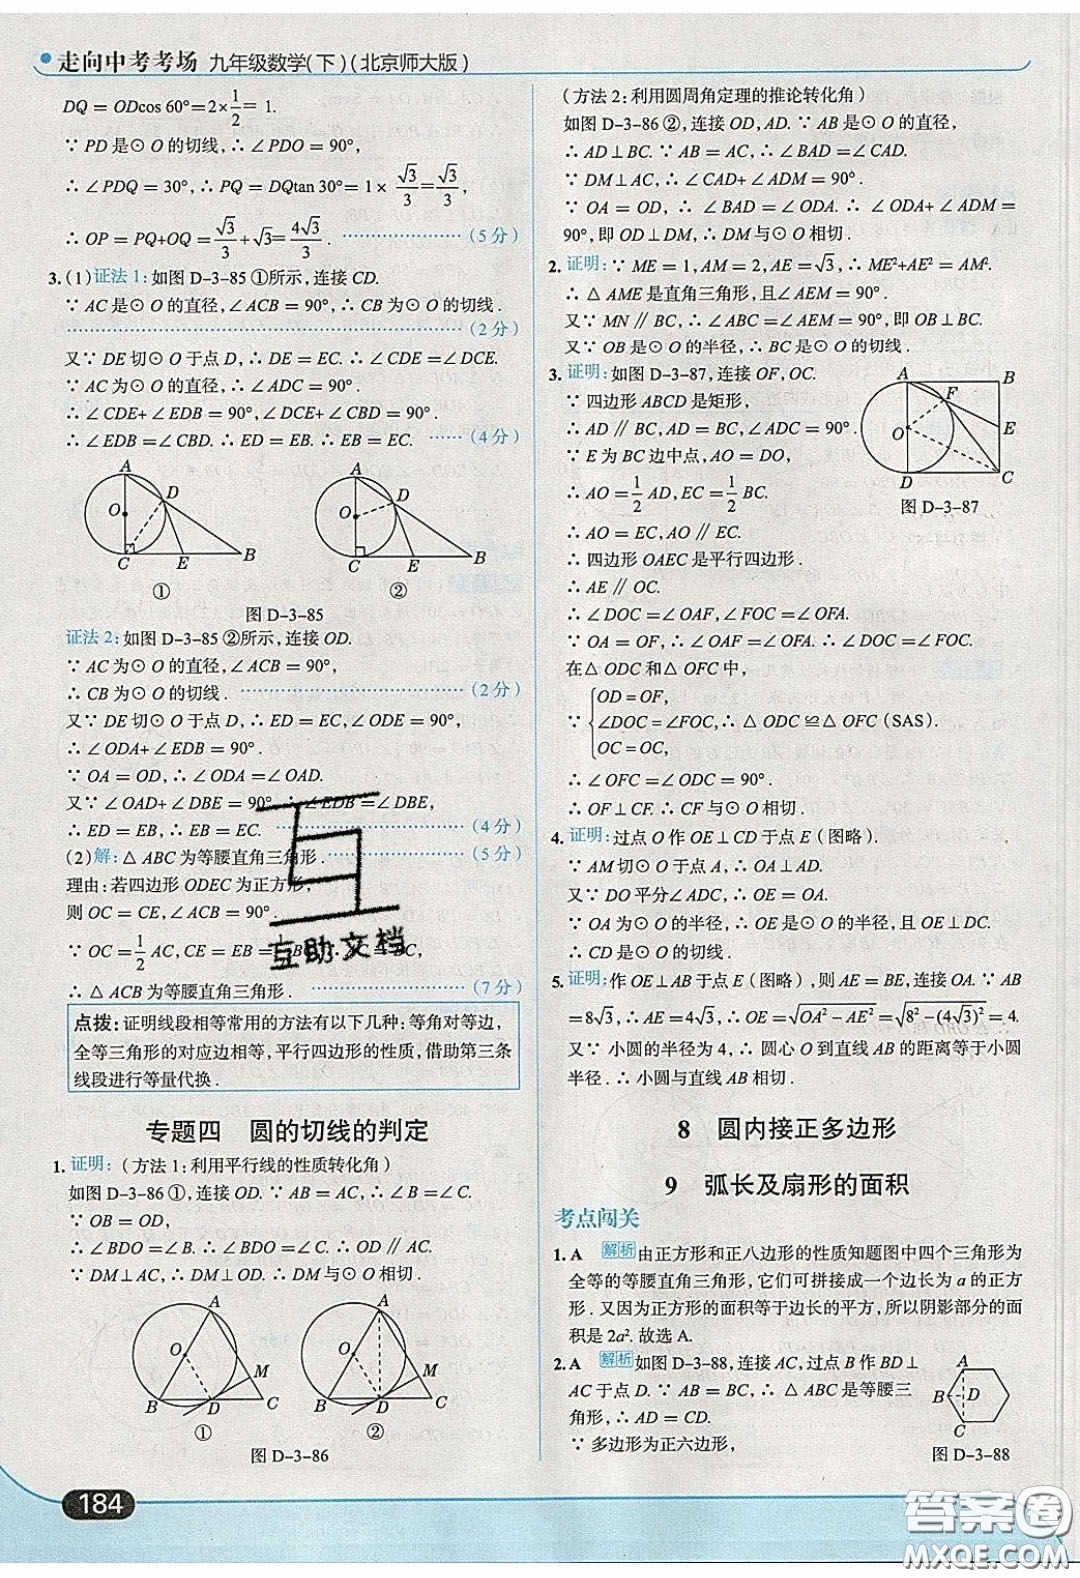 走向中考考场 九年级数学(下)(北京师大版)
DQ = ODcos 60°=2×1/2= 1.
∵ PD 是⊙ O 的切线,∴ ∠PDO = 90°,
∴ ∠PDQ = 30°,∴ PQ = DQtan 30°= 1× √3/3=√3/3,
∴ OP = PQ+OQ =√3/3+√3=4√3/3. (5分)
3.(1)证法 1:如图 D-3-85 ①所示,连接 CD.
∵ AC 是⊙ O 的直径,∠ACB = 90°,∴ CB 为⊙ O 的切线.
(2分)
又∵ DE 切⊙ O 于点 D,∴ DE = EC. ∴ ∠CDE =∠DCE.
∵ AC 为⊙ O 的直径,∴ ∠ADC = 90°.
∴ ∠CDE+ ∠EDB = 90°,∠DCE+ ∠CBD = 90°.
∴ ∠EDB =∠CBD. ∴ ED = EB. ∴ EB = EC. (4分)
A
D
O
C E B
①
A
D
O
C E B
②
图 D-3-85
证法 2:如图 D-3-85 ②所示,连接 OD.
∵ AC 为⊙ O 的直径,∠ACB = 90°,
∴ CB 为⊙ O 的切线. (2分)
又∵ DE 切⊙ O 于点 D,∴ ED = EC,∠ODE = 90°,
∴ ∠ODA+ ∠EDB = 90°.
∵ OA = OD,∴ ∠ODA =∠OAD.
又∵ ∠OAD+ ∠DBE = 90°,∴ ∠EDB =∠DBE,
∴ ED = EB,∴ EB = EC. (4分)
(2)解:△ ABC 为等腰直角三角形. (5分)
理由:若四边形 ODEC 为正方形,
则 OC = CE,∠ACB = 90°.
∵ OC =1/2 AC,CE = EB =
互助文档
∴ △ ACB 为等腰直角三角形. (7分)
点拨:证明线段相等常用的方法有以下几种:等角对等边,
全等三角形的对应边相等,平行四边形的性质,借助第三条
线段进行等量代换.
专题四 圆的切线的判定
1. 证明:(方法 1:利用平行线的性质转化角)
如图 D-3-86 ①,连接 OD. ∵ AB = AC,∴ ∠B =∠C.
∵ OB = OD,
∴ ∠BDO =∠B,∴ ∠BDO =∠C. ∴ OD ∥ AC.
∵ DM⊥AC,∴ DM⊥OD. ∴ DM与⊙ O 相切.
A
O
M
B D C
①
A
O
M
B D C
②
图 D-3-86
184
(方法 2:利用圆周角定理的推论转化角)
如图 D-3-86 ②,连接 OD,AD. ∵ AB 是⊙ O 的直径,
∴ AD⊥BC. ∵ AB = AC,∴ ∠BAD =∠CAD.
∵ DM⊥AC,∴ ∠CAD+ ∠ADM = 90°.
∵ OA = OD,∴ ∠BAD =∠ODA. ∴ ∠ODA+ ∠ADM =
90°,即 OD⊥DM,∴ DM与⊙ O 相切.
2. 证明:∵ ME = 1,AM = 2,AE =√3,∴ ME²+AE² = AM².
∴ △ AME 是直角三角形,且∠AEM = 90°.
又∵ MN ∥ BC,∴ ∠ABC =∠AEM = 90°,即 OB⊥BC.
又∵ OB 是⊙ O 的半径,∴ BC 是⊙ O 的切线.
3. 证明:如图 D-3-87,连接 OF,OC.
∵ 四边形 ABCD 是矩形,
∴ AD ∥ BC,AD = BC,∠ADC = 90°.
∵ E 为 BC 边中点,AO = DO,
∴ AO =1/2 AD,EC =1/2 BC.
∴ AO = EC,AO ∥ EC.
A B
F
O E
D C
图 D-3-87
∴ 四边形 OAEC 是平行四边形.
∴ AE ∥ OC.
∴ ∠DOC =∠OAF,∠FOC =∠OFA.
∵ OA = OF,∴ ∠OAF =∠OFA. ∴ ∠DOC =∠FOC.
在△ ODC 和△ OFC 中,
∵ { OD = OF,
∠DOC =∠FOC,∴ △ ODC ≌△ OFC(SAS).
OC = OC,
∴ ∠OFC =∠ODC = 90°.
∴ OF⊥CF. ∴ CF 与⊙ O 相切.
4. 证明:过点 O 作 OE⊥CD 于点 E(图略).
∵ AM 切⊙ O 于点 A,∴ OA⊥AD.
又∵ DO 平分∠ADC,∴ OE = OA.
∵ OA 为⊙ O 的半径,∴ OE 是⊙ O 的半径,且 OE⊥DC.
∴ CD 是⊙ O 的切线.
5. 证明:作 OE⊥AB 于点 E(图略),则 AE = BE,连接 OA. ∵ AB
=8√3,∴ AE = 4√3,∴ OE=√(OA²−AE²)=√(8²−(4√3)²)= 4.
又∵ 小圆的半径为 4,∴ 圆心 O 到直线 AB 的距离等于小圆
半径.∴ 小圆与直线 AB 相切.
8 圆内接正多边形
9 弧长及扇形的面积
考点闯关
1. A 解析 由正方形和正八边形的性质知题图中四个三角形为
全等的等腰直角三角形,它们可拼接成一个边长为 a 的正方
形. 又因为正方形的面积等于边长的平方,所以阴影部分的面
积是 2a². 故选 A.
2. A 解析 如图 D-3-88,连接 AC,过点 B 作 BD⊥
AC 于点 D. ∵ AB = BC,∴ △ ABC 是等腰三
角形,∴ AD = CD.
∵ 多边形为正六边形,
A
B D
C
图 D-3-88
答案圈
MXQE.COM